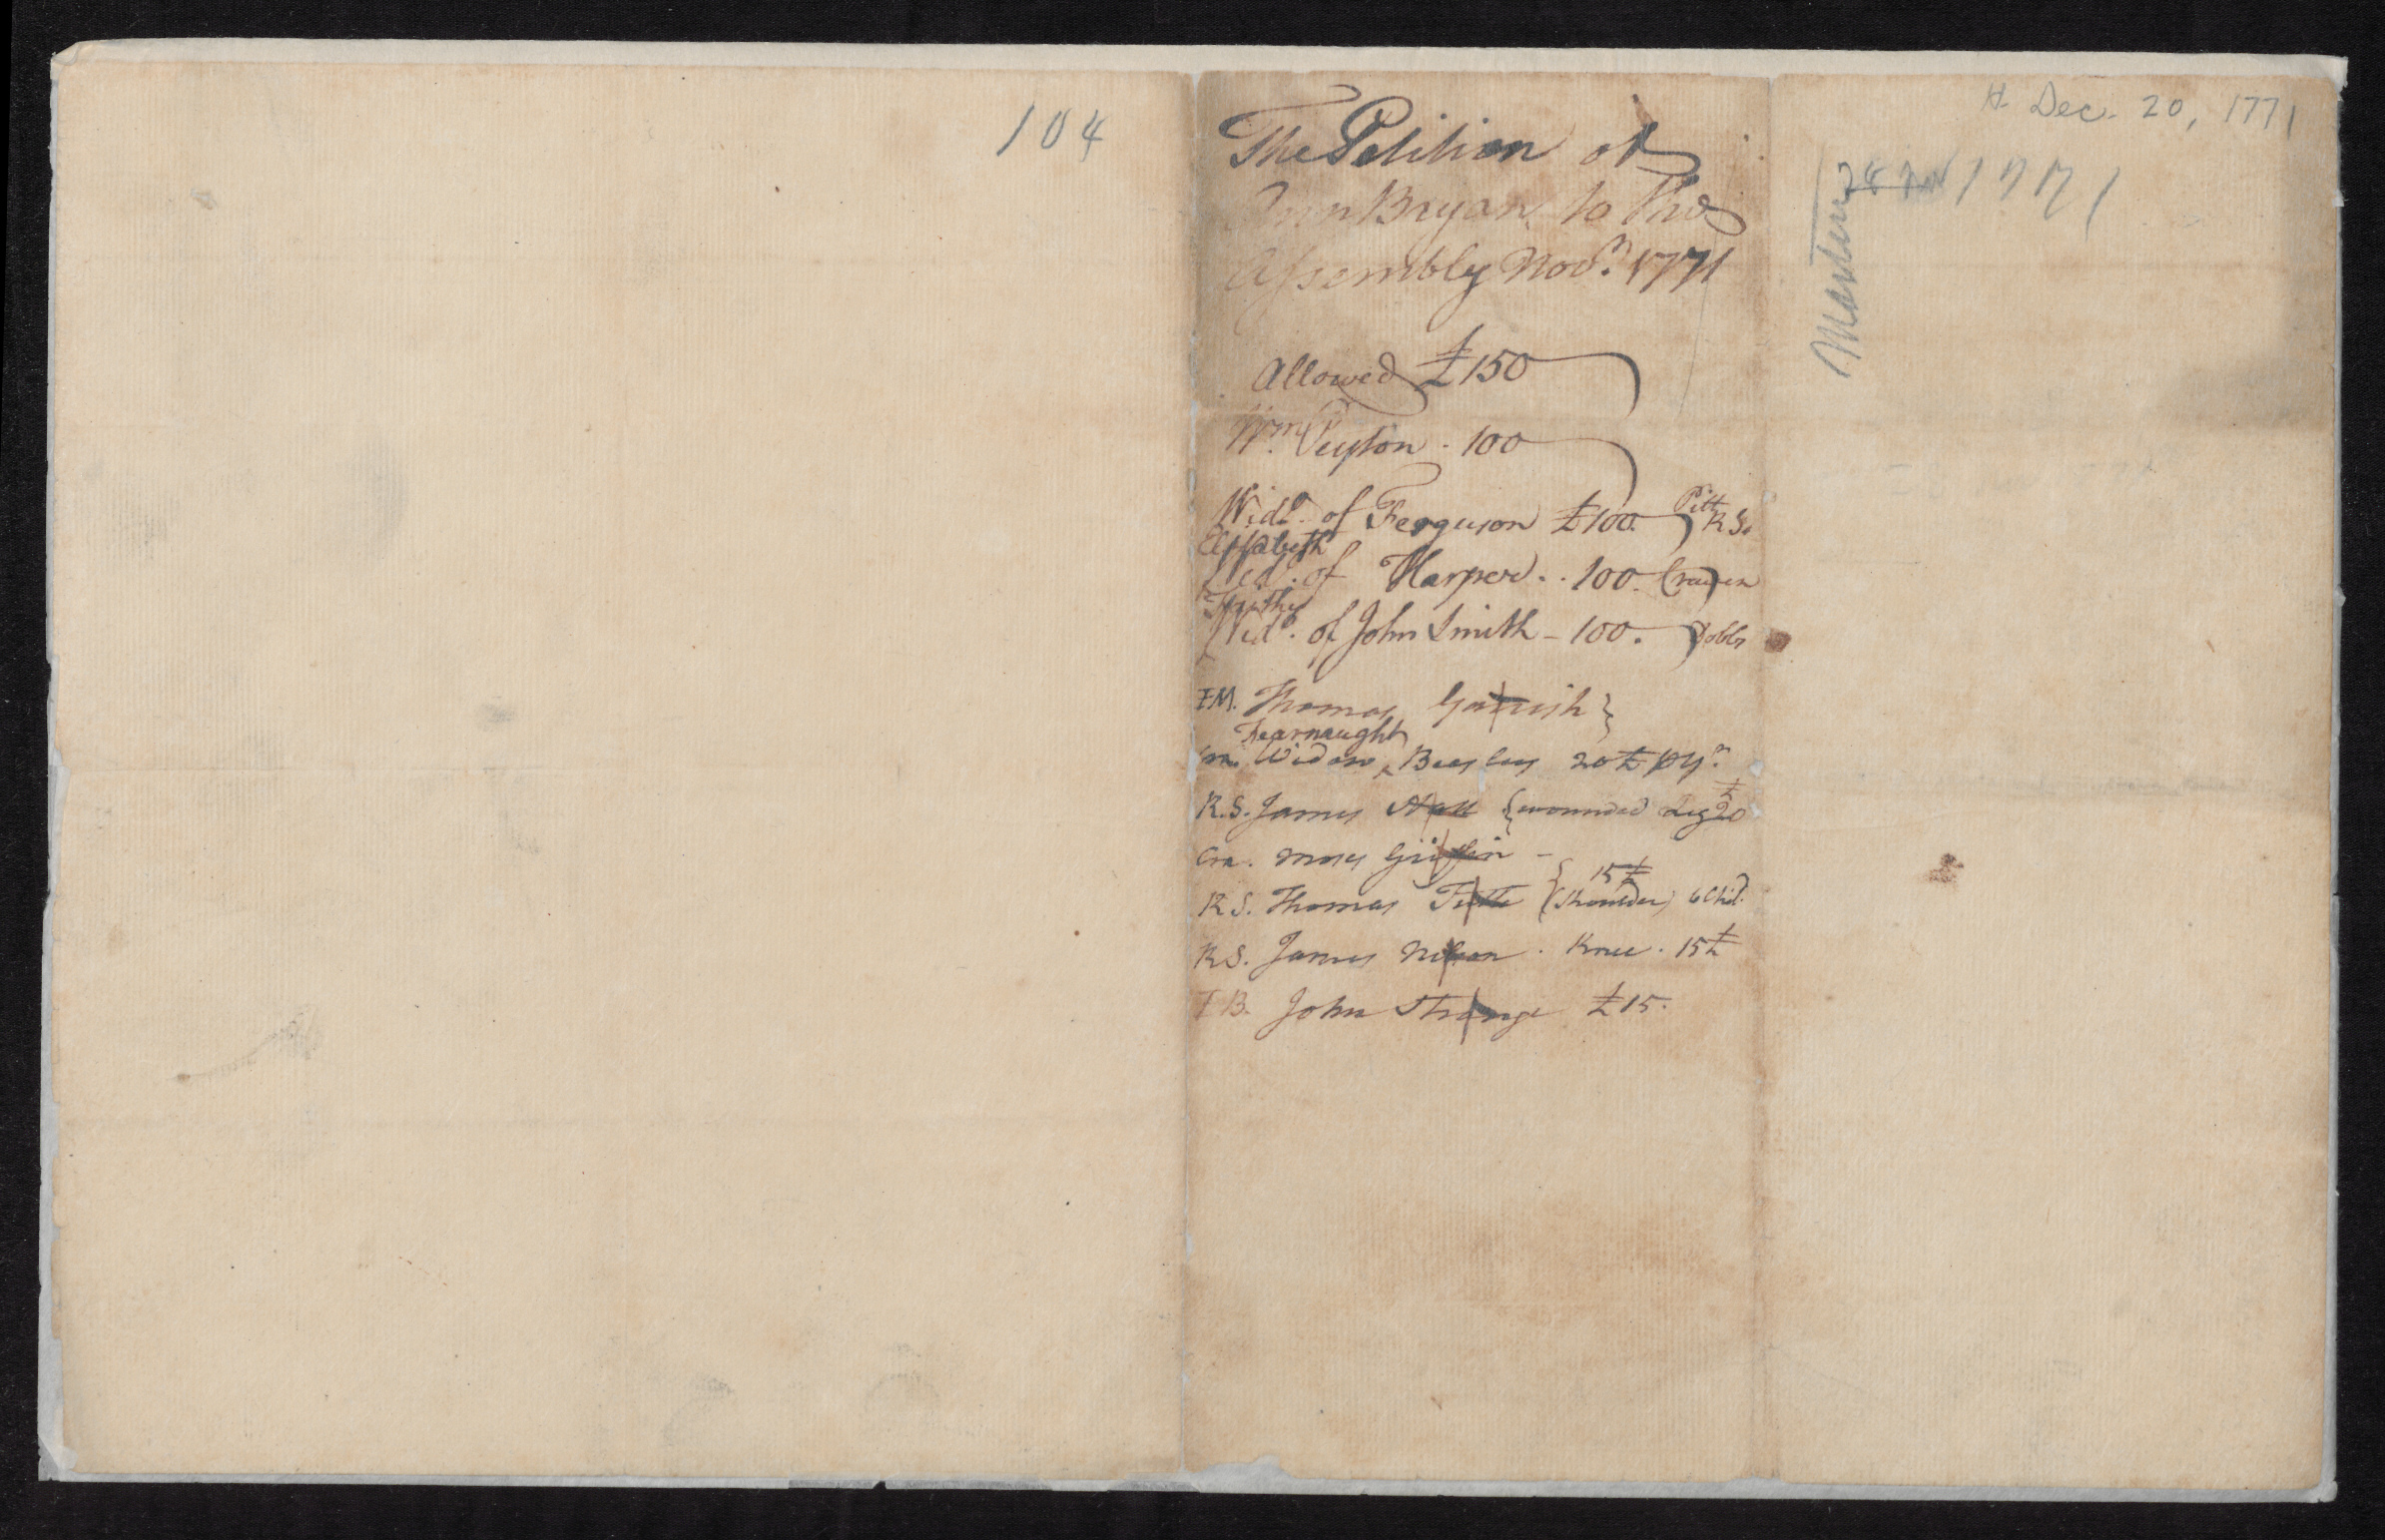 104
The Petition of
Ann Bryan to the
Assembly Novr. 1771
Allowed £150
Wm. Peyton . 100
Widw. of Ferguson £100. Pitt R S.
Elizabeth
Wid. of Harper . . 100. Craven
Widw. of John Smith - 100. Dobbs
F M. Thomas
Fearnaught
Cra. Widow ^ Beasley 20 £ py.
R. S. James Hall {wounded Leg £20
Cra. Moses Griffin -
15 £
R S. Thomas (Shoulder) 6 Chil.
R S. James Nelson . Knee . 15 £
F B. John Strange £ 15.
H. Dec. 20, 1771
1771
Martin